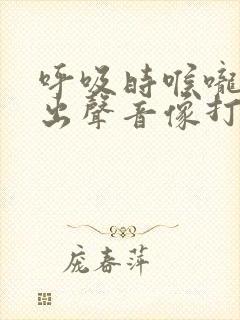 呼吸時喉嚨
出聲音像打
庞春萍